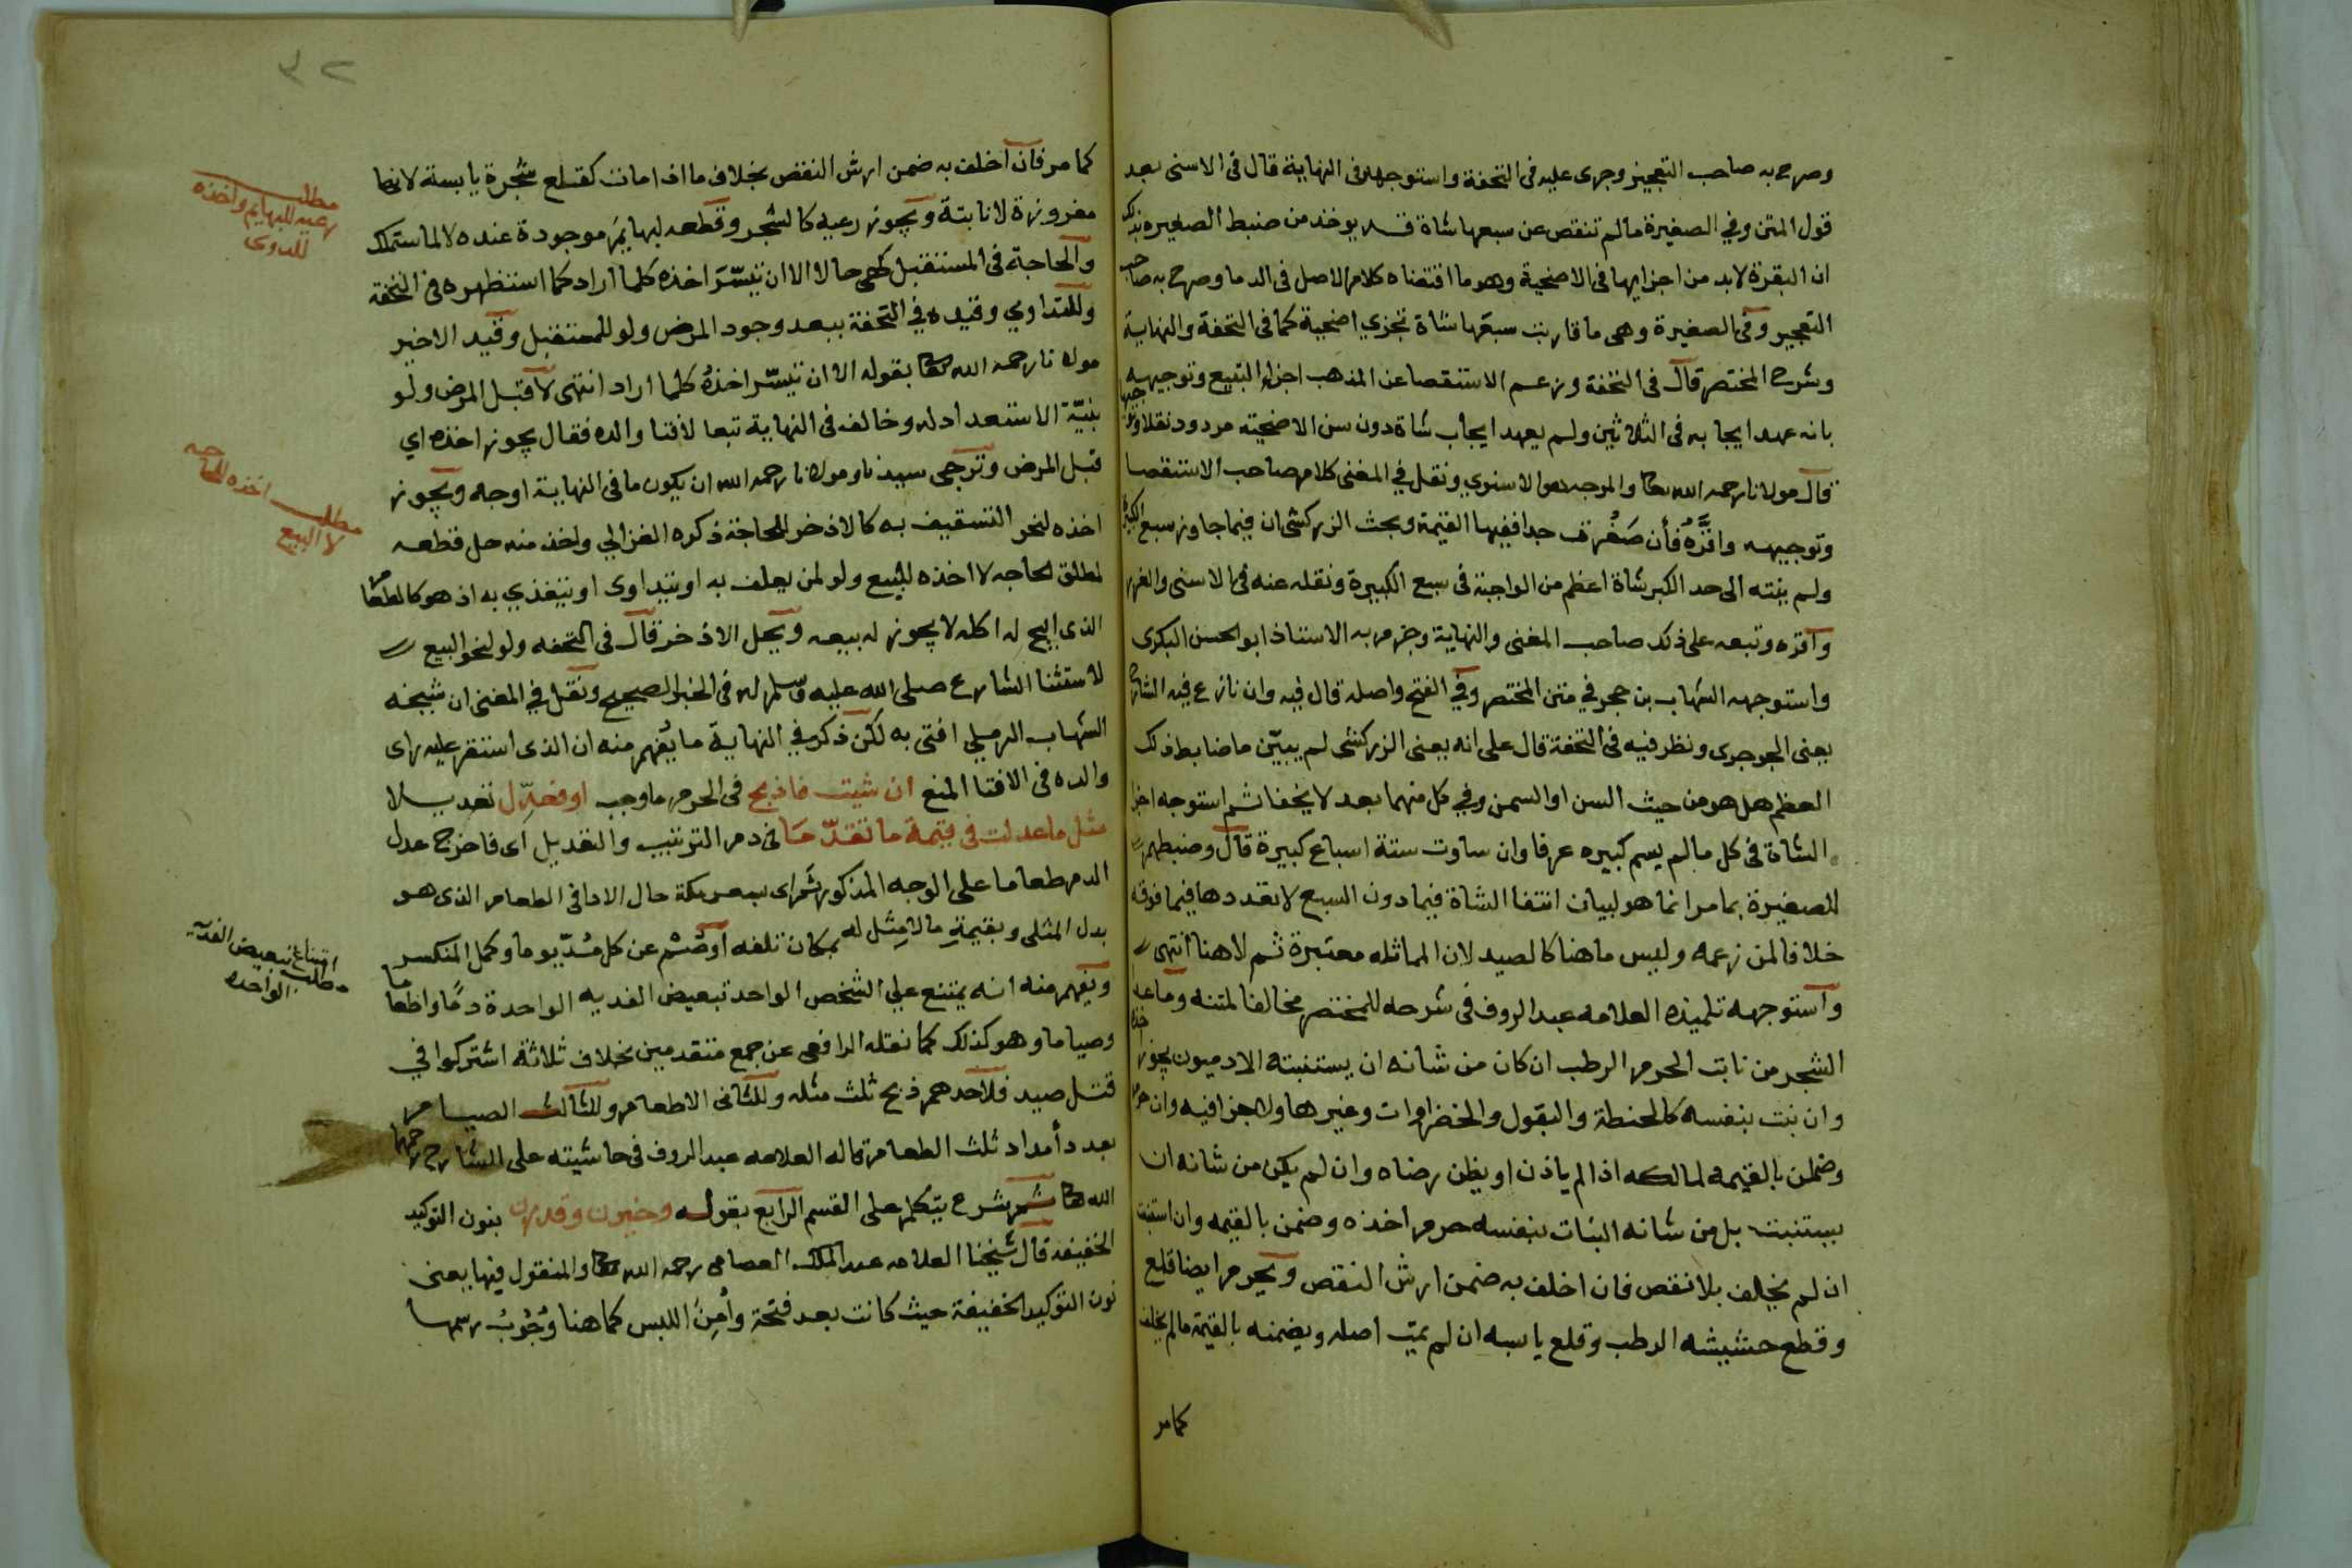 وصرح به صاحب التعجيز وجرى عليه في التحفة واستوجهه في النهاية قال في الاسنى بعد
قول المتن وفي الصغيرة مالم تنقص عن سبعها شاة قد يوخذ من ضبط الصغيره بذلك
ان البقرة لابد من اجزايها في الاضحية وهو ما اقتضاه كلام الاصل في الدما وصرح به صاحب
التعجيز وفي الصغيرة وهي ما قاربت سبعها شاة تجزي اضحية كما في التحفة والنهاية
وشرح المختصر قال في التحفة وزعم الاستقصا عن المذهب اجزا التبيع وتوجيهه
بانه عهد ايجابه في الثلاثين ولم يعهد ايجاب شاة دون سن الاضحيته مردود نقلا وتوجيها
قال مولانا رحمه الله تعا والموجه هو الاسنوي ونقل في المغنى كلام صاحب الاستقصا
وتوجيهه واقرَّهُ فأن صَغُرت جدا ففيها القيمة وبحث الزركشى ان فيما جاوز سبع الكبيرة
ولم ينته الى حد الكبر شاة اعظم من الواجبة في سبع الكبيرة ونقله عنه في الاسنى والغرر
واقره وتبعه على ذلك صاحب المغنى والنهاية وجزم به الاستاذ ابو الحسن البكرى
واستوجهه الشهاب بن حجر في متن المختصر وفي الفتح واصله قال فيه وان نازع فيه الشارح
يعنى الجوجرى ونظر فيه في التحفة قال على انه يعنى الزركشى لم يبيّن ما ضابط ذلك
العظم هل هو من حيث السن او السمن وفي كل منهما بعد لا يخفا ثم استوجه اجزا
الشاة في كل مالم يسم كبيره عرفا وان ساوت ستة اسباع كبيرة قال وضبطهم
للصغيرة بما مر انما هو لبيان انتفا الشاة فيما دون السبع لا بعددها فيما فوقه
خلافا لمن زعمه وليس ما هنا كالصيد لان المماثله معتبرة ثم لا هنا انتهى
واستوجهه تلميذه العلامه عبد الروف في شرحه للمختصر مخالفا لمتنه وماعدا
الشجر من نابت الحرم الرطب ان كان من شانه ان يستنبته الادميون يجوز اخذه
وان نبت بنفسه كالحنطة والبقول والخضراوات وغيرها ولا جزا فيه وان حرم
وضمن بالقيمه لمالكه اذا لم ياذن او يظن رضاه وان لم يكن من شانه ان
يستنبت بل من شانه النبات بنفسه حرم اخذه وضمن بالقيمه وان استنبت
ان لم يخلف بلا نقص فان اخلف به ضمن ارش النقص ويحرم ايضا قلع
وقطع حشيشه الرطب وقلع يابسه ان لم يمت اصله ويضمنه بالقيمة مالم يخلف
كما مر
٣٢
كما مر فان اخلف به ضمن ارش النقص بخلاف ما اذا مات كقلع شجرة يابسة لانها
مغروزة لا نابتة ويجوز رعيه كالشجر وقطعه لبهايمَ موجودة عنده لا لما ستملك
والحاجة في المستقبل كهى حالا الا ان تيسَّرَ اخذه كلما اراد كما استظهره في التحفة
وللتداوي وقيده في التحفة ببعد وجود المرض ولو للمستقبل وقيد الاخير
مولانا رحمه الله تعا بقوله الا ان تيسّر اخذهُ كلما اراد انتهى لا قبل المرض ولو
بنيّة الاستعداد له وخالف في النهاية تبعا لافتا والده فقال يجوز اخذه اي
قبل المرض وترجى سيدنا ومولانا رحمه الله ان يكون ما في النهاية اوجه ويجوز
اخذه لنحو التسقيف به كالاذخر للحاجة ذكره الغزالي واخذ منه حل قطعه
لمطلق الحاجه لا اخذه للبيع ولو لمن يعلف به او يتداوى او يتغذي به اذ هو كالطعام
الذى ابيح له اكله لا يجوز له بيعه ويحل الاذخر قال في التحفه ولو لنحو البيع
لاستثنا الشارع صلى الله عليه وسلم له في الخبر الصحيح ونقل في المغنى ان شيخه
الشهاب الرملي افتى به لكن ذكر في النهاية ما يُفهم منه ان الذى استقر عليه راى
والده في الافتا المنع ان شيت فاذبح في الحرم ما وجب او فعدِّل تعديلا
مثل ما عدلت في قيمة ما تقدّما في دم الترتيب والتعديل اى فاخرج عدل
الدم طعاما على الوجه المذكور ثَم اى بسعر مكة حال الادا في الطعام الذى هو
بدل المثلى وبقيمةِ ما لا مِثل له بمكان تلفه او صُم عن كل مُدّ يوما وكمل المنكسر
ويفهم منه انه يمتنع علي الشخص الواحد تبعيض الفديه الواحدة دمًا واطعاما
وصياما وهو كذلك كما نقله الرافعى عن جمع متقدمين بخلاف ثلاثة اشتركوا في
قتل صيد فلاحدهم ذبح ثلث مثله وللثانى الاطعام وللثالث الصيام
بعدد أمداد ثلث الطعام قاله العلامه عبد الروف في حاشيته على الشارح رحمهما
الله تعا ثم شرع يتكلم على القسم الرابع بقوله وخيرن وقدرن بنون التوكيد
الخفيفه قال شيخنا العلامه عبد الملك العصامى رحمه الله تعا والمنقول فيها يعنى
نون التوكيد الخفيفة حيث كانت بعد فتحة وأمِنَ اللبس كما هنا وُجُوبُ رسمها
مطلب
رعيه للبهايم واخذه
للدوى
مطلب اخذه للحاجه
لا البيع
امتناع تبعيض الفديه
مطلب الواحده